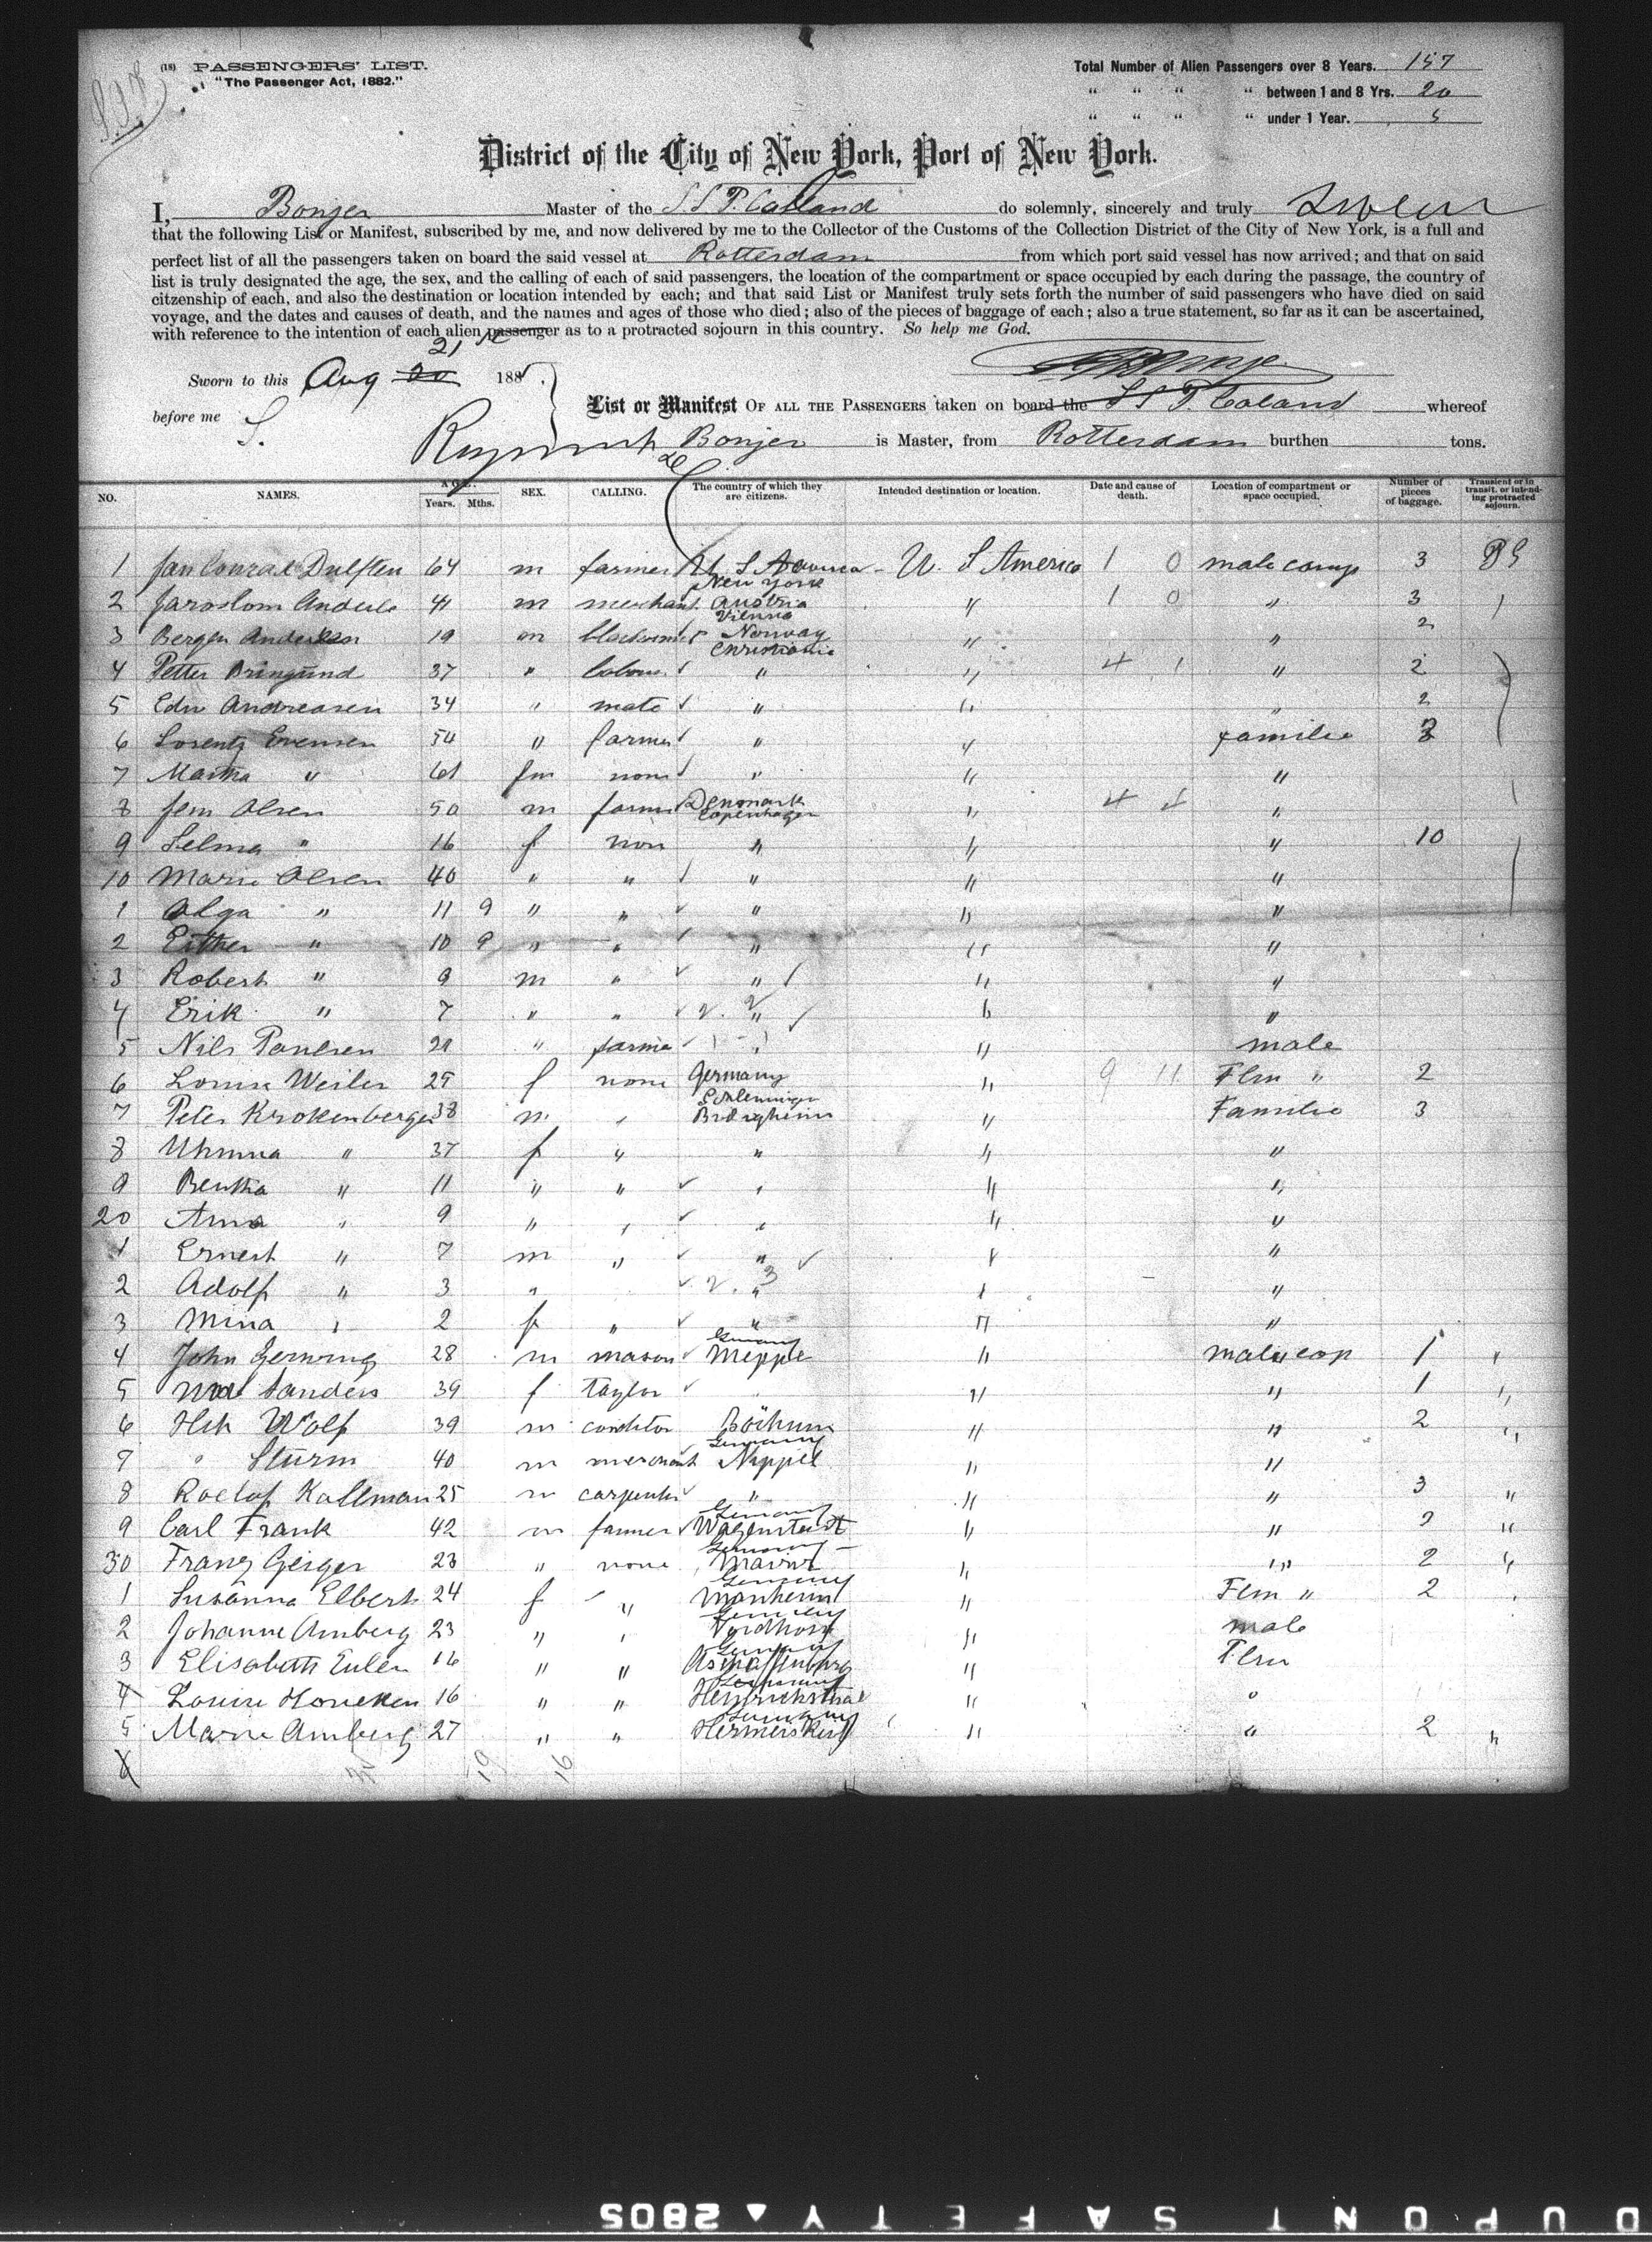 (18) PASSENGERS' LIST.
"The Passenger Act, 1882."
Total Number of Alien Passengers over 8 Years. 157
" " " " between 1 and 8 Yrs. 20
" " " " under 1 Year. 5
District of the City of New York, Port of New York.
I, Bonjer Master of the S.S. P. Caland do solemnly, sincerely and truly Swear
that the following List or Manifest, subscribed by me, and now delivered by me to the Collector of the Customs of the Collection District of the City of New York, is a full and
perfect list of all the passengers taken on board the said vessel at Rotterdam from which port said vessel has now arrived; and that on said
list is truly designated the age, the sex, and the calling of each of said passengers, the location of the compartment or space occupied by each during the passage, the country of
citzenship of each, and also the destination or location intended by each; and that said List or Manifest truly sets forth the number of said passengers who have died on said
voyage, and the dates and causes of death, and the names and ages of those who died; also of the pieces of baggage of each; also a true statement, so far as it can be ascertained,
with reference to the intention of each alien passenger as to a protracted sojourn in this country. So help me God.
21
Sworn to this Aug 20 188
before me S.
List or Manifest OF ALL THE PASSENGERS taken on board the S S P. Caland whereof
Bonjer is Master, from Rotterdam burthen tons.
NO. NAMES. AGE. Years. Mths. SEX. CALLING. The country of which they are citizens. Intended destination or location. Date and cause of death. Location of compartment or space occupied. Number of pieces of baggage. Transient or in transit, or intending protracted sojourn.
1 Jan Conrad Dulften 64 m farmer U. S America U. S America 1 0 male comp 3 PS
New York
2 41 m merchant Austria " 1 0 " 3
Vienna
3 Bergen Andersen 19 m blacksmit Norway " " 2
Christiania
4 Petter 37 " " " 4 1 " 2
5 Edw Andreasen 34 " mate " " " 2
6 Lorentz Evensen 54 " farmer " " familie 3
7 Martha " 61 fm none " " "
8 Jem Olsen 50 m farmer Denmark " 4 4 "
Copenhagen
9 Selma " 16 f non " " " 10
10 Marie Olsen 40 " " " " "
1 Olga " 11 9 " " " " "
2 Esther " 10 9 " " " " "
3 Robert " 9 m " " " "
4 Erik " 7 " " " " "
5 Nils Paulsen 29 " farme " " male
6 Louise Weiler 25 f none Germany " 9 11 Flm " 2
7 Peter Krokenberger 38 m " " Familie 3
8 " 37 f " " " "
9 Bertha " 11 " " " " "
20 Anna " 9 " " " " "
1 Ernest " 7 m " " " "
2 Adolf " 3 " " " "
3 Mina " 2 f " " " "
Germany
4 John Gerwing 28 m mason Mepple " male cop 1 "
5 Sanders 39 f taylor " " " 1 "
6 Hch Wolf 39 m conditor Bochum " " 2 "
Germany
7 " Sturm 40 m merchant Neppel " "
8 Roelof Kallman 25 m carpenter " " " 3 "
Germany
9 Carl Frank 42 m farmer " " 2 "
Germany
30 Franz Geiger 23 " none " " 2 "
Germany
1 Susanna Elbert 24 f " Manheim " Flm " 2 "
Germany
2 Johanne Amberg 23 " " Nordhorn " male
Germany
3 Elisabeth Euler 16 " " Aschaffenburg " Flm
Germany
4 Louise Honeken 16 " " " "
Germany
5 Marie Amberg 27 " " Hermerskeil " " 2 "
6
19 16
DUPONT SAFETY ▲ 2805